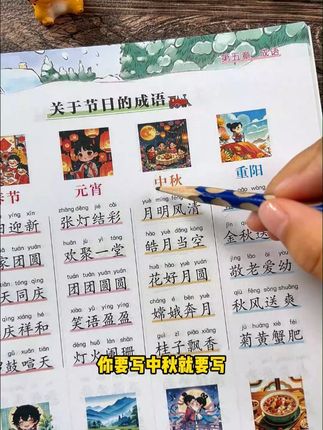 第五章 成语
关于节日的成语
节 元宵 中秋 重阳
yíng xīn zhāng dēng jié cǎi yuè míng fēng
迎新 张灯结彩 月明风清 金秋
jiā tuán yuán huān jù yì táng hào yuè dāng kōng jìng lǎo ài yòu
家团圆 欢聚一堂 皓月当空 敬老爱幼
tiān tóng qìng tuán tuán yuán yuán huā hǎo yuè yuán qiū fēng sòng shuǎng
天同庆 团团圆圆 花好月圆 秋风送爽
qìng xiáng hé xiào yǔ yíng yíng cháng é bēn yuè jú huáng xiè féi
庆祥和 笑语盈盈 嫦娥奔月 菊黄蟹肥
gǔ xuān tiān dēng huǒ lán shān guì zǐ piāo xiāng
鼓喧天 灯火阑珊 桂子飘香
你要写中秋就要写